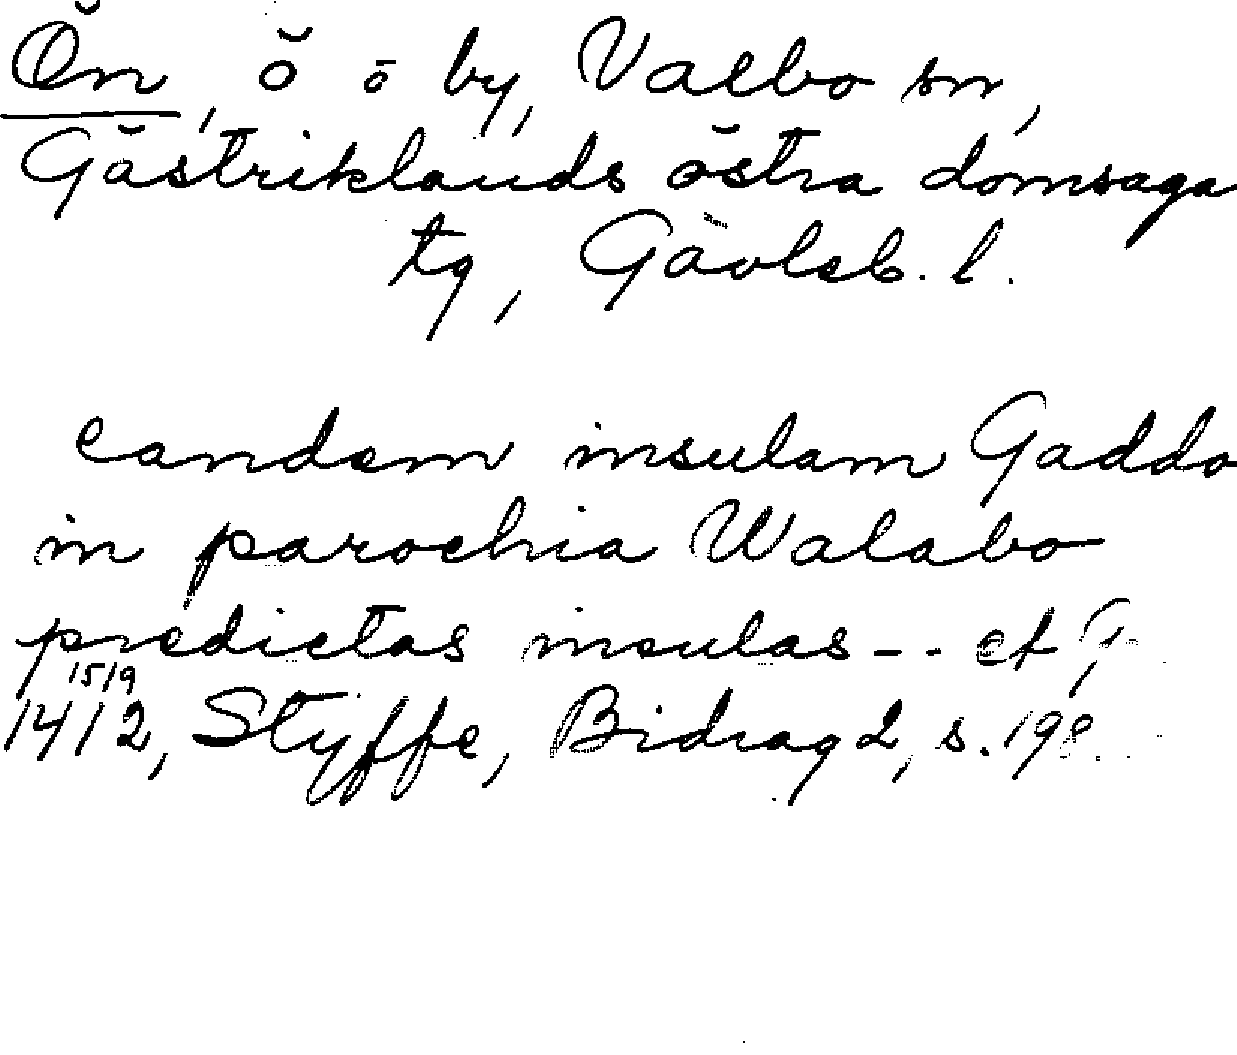 Ön, ö ō by, Valbo sn,
Gästriklands östra domsaga
tg, Gävleb. l.
eandem insulam Gaddo
in parochia Walabo
predictas insulas -- et
15/9
1412, Styffe, Bidrag 2, s. 198.